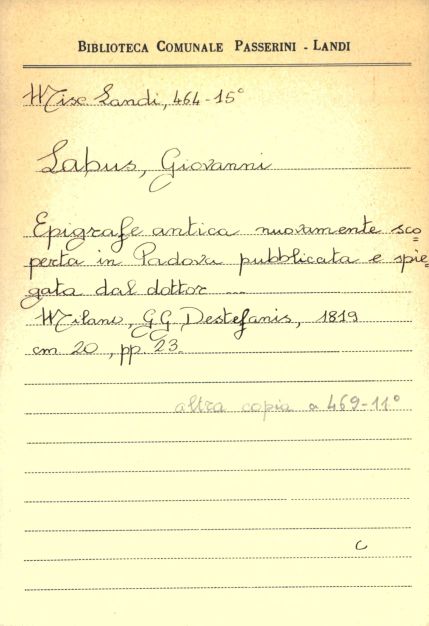 BIBLIOTECA COMUNALE PASSERINI - LANDI
Misc. Landi, 464-15°
Labus, Giovanni
Epigrafe antica nuovamente sco
perta in Padova pubblicata e spie=
gata dal dottor ...
Milano, G.G. Destefanis, 1819
cm 20, pp. 23.
altra copia a 469-11°
c